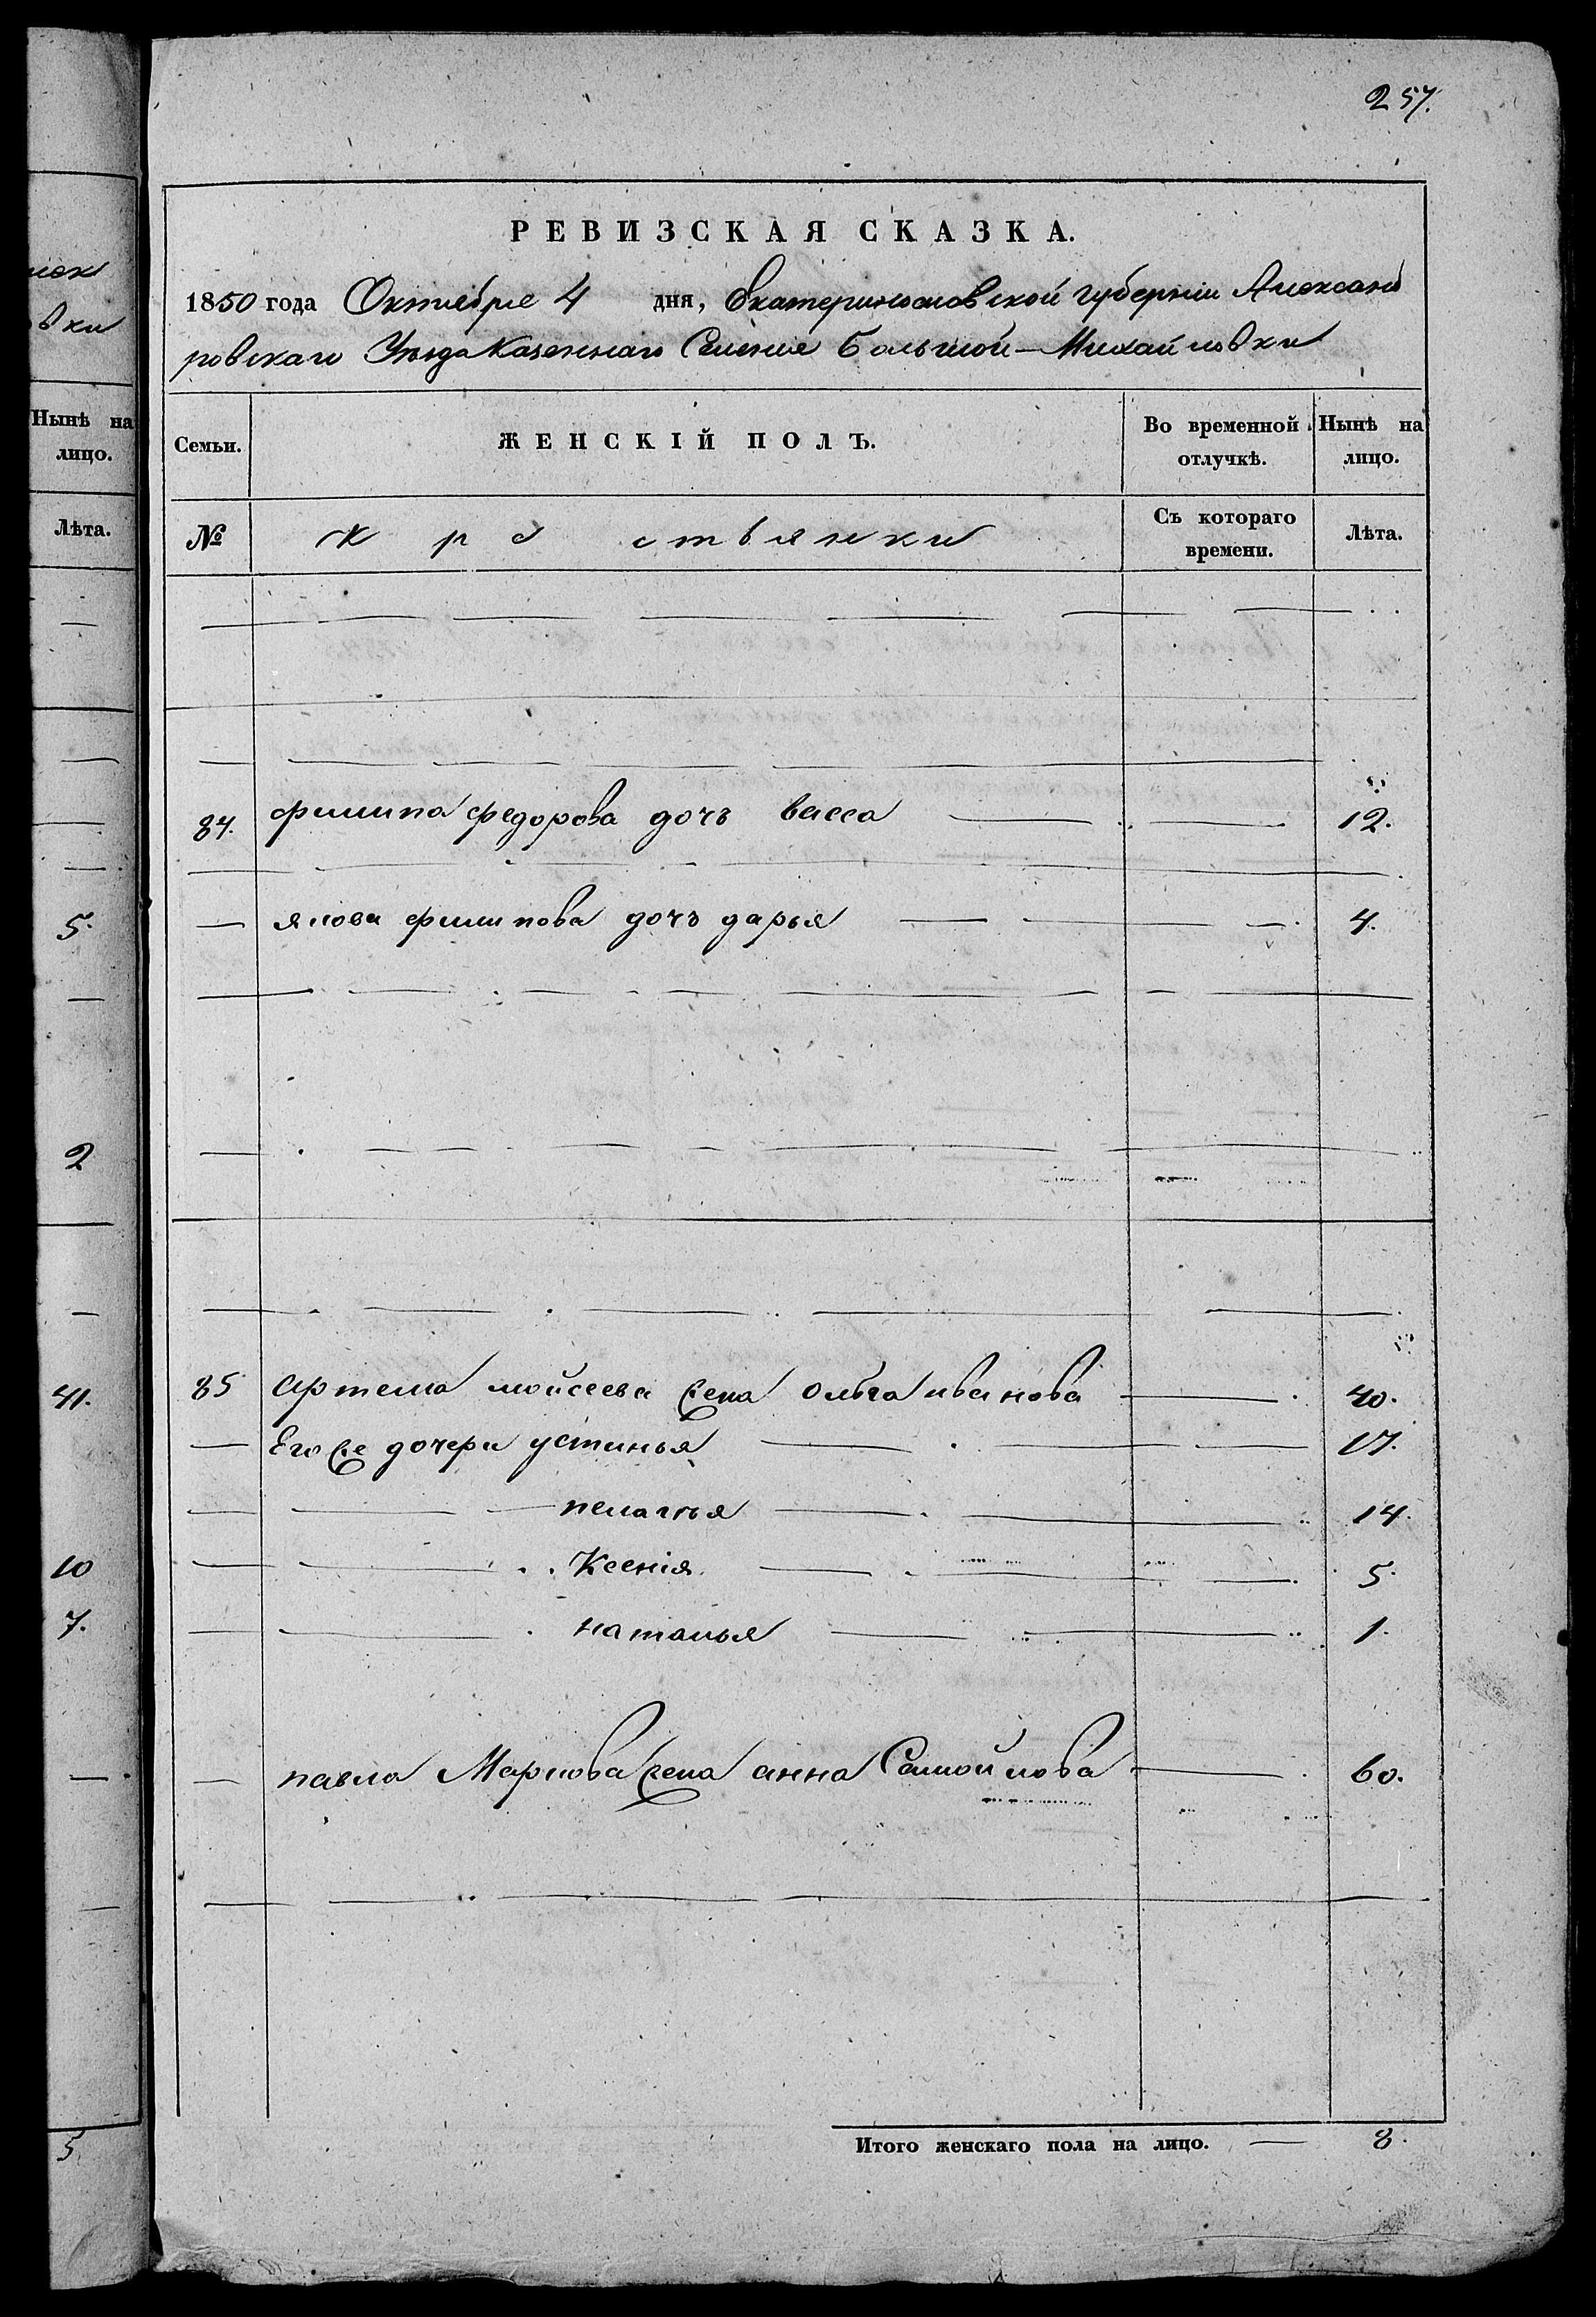 257.
РЕВИЗСКАЯ СКАЗКА.
1850 года Октября 4 дня, Екатеринославской губернии Александ
ровскаго Уѣзда Казеннаго Селения Большой-Михайловки
вки
Нынѣ на лицо.
Лѣта.
Семьи.
ЖЕНСКІЙ ПОЛЪ.
Во временной отлучкѣ.
Нынѣ на лицо.
№
Крестьянки
Съ котораго времени.
Лѣта.
84. филипа федорова дочь васса 12.
5.
— якова филипова дочь дарья 4.
2
41.
85 артема мойсеева жена ольга иванова 40.
— Его же дочери устинья 17.
пелагья 14.
10
Ксенія 5.
7.
наталья 1.
— павла Маркова жена анна Самойлова 60.
5
Итого женскаго пола на лицо. — 8.